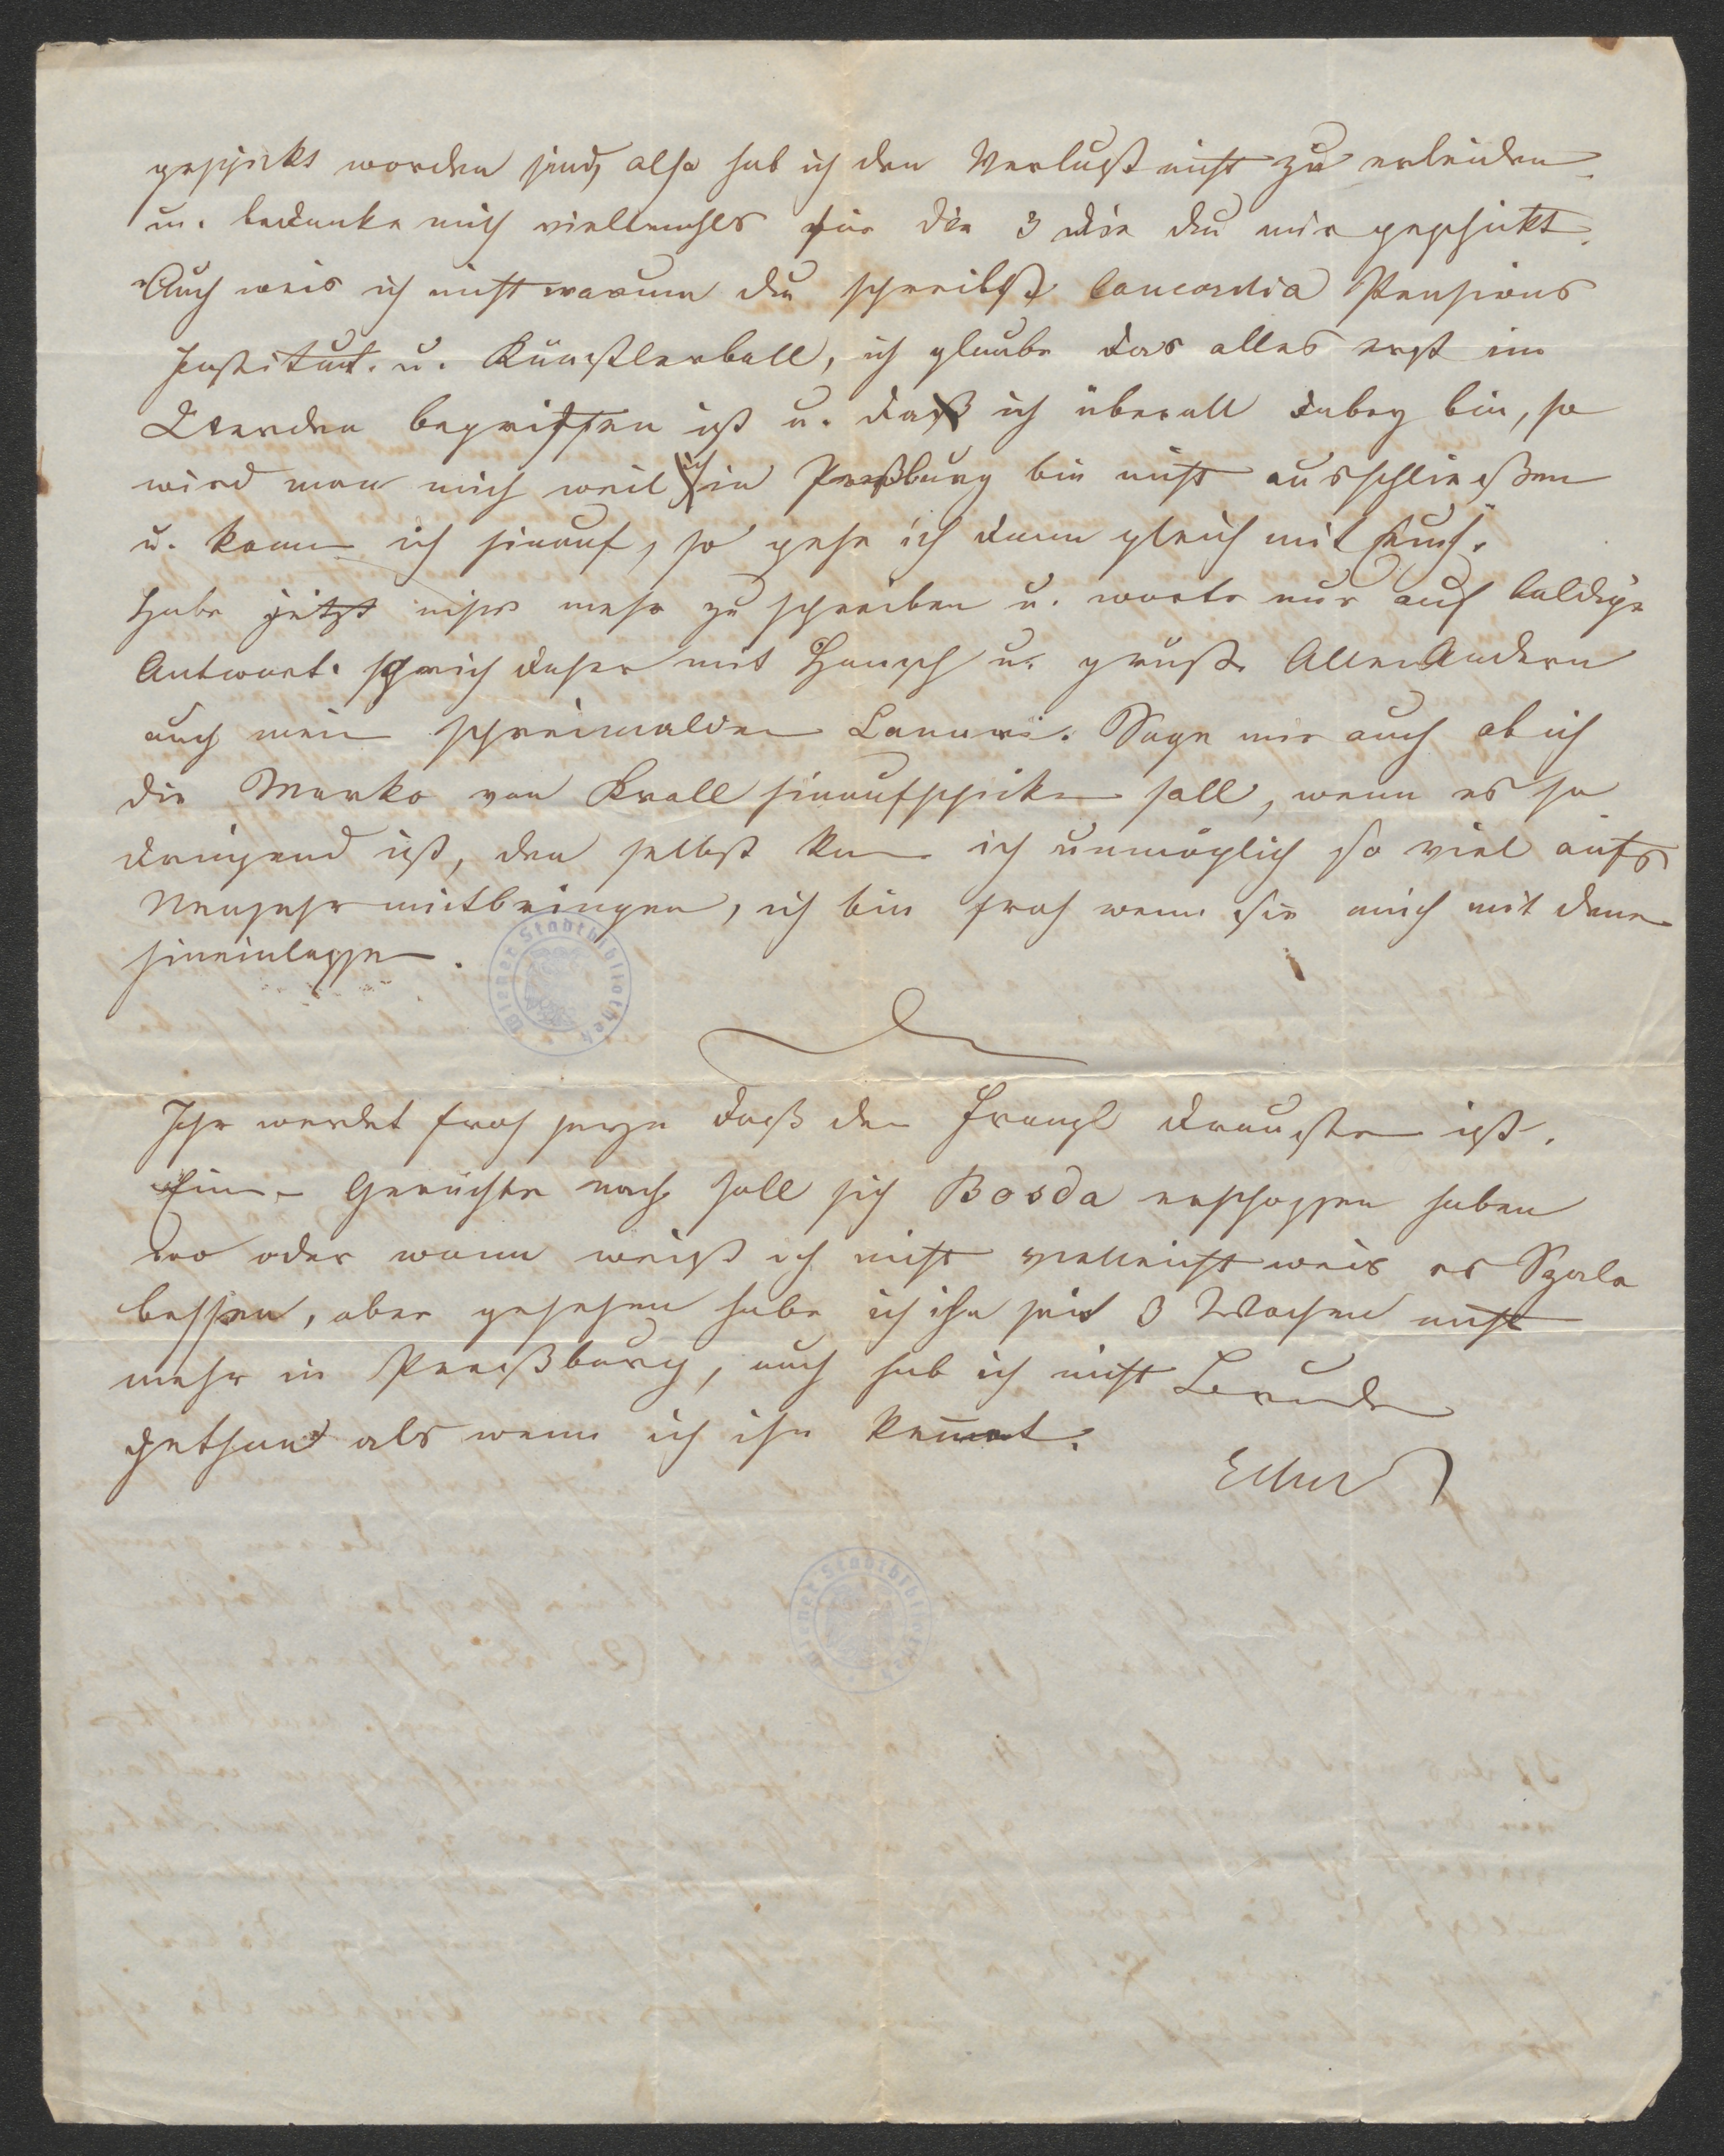 geschikt worden sind, also hab ich den Verlußt nicht zu erleiden
u. bedanke mich vielemahls für die 3 die du mir geschikt.
Auch weis ich nicht warum du schreibst Concordia Pensions
Institut. u. Künstlerball, ich glaube das alles erst im
Werden begriffen ist u. daß ich überall dabey bin, so
wird man mich weil ich in Preßburg bin nicht ausschließen
u. komm ich hinauf, so gehe ich dann gleich mit Euch.
Habe jetzt nichts mehr zu schreiben u. warte nur auf baldige
Antwort. daher mit u. grüße Allen Andern
auch mein Lanuwi. Sage mir auch ob ich
die Marko von Krall hinaufschicken soll, wenn es so
dringend ist, den selbst kann ich unmöglich so viel aufs
Neujahr mitbringen, ich bin froh wenn sie mich mit dene
hineinlassen.
Wiener Stadtbibliothek
Ihr werdet froh seyn daß der Franzl draußen ist.
Einem Gerüchte nach soll sich Bosda erschossen haben
wo oder wann weiß ich nicht vielleicht weis es Szala
besser, aber gesehen habe ich ihn seit 3 Wochen nicht
mehr in Preißburg, auch hab ich nicht
gethan als wenn ich ihn kennet.
Wiener Stadtbibliothek